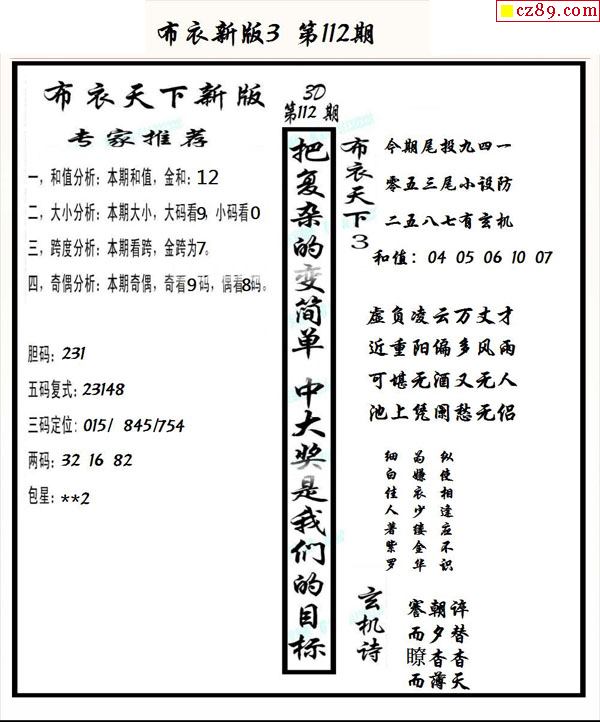 cz89.com
布衣新版3 第112期
布衣天下新版
专家推荐
一，和值分析：本期和值，金和：12
二，大小分析：本期大小，大码看9，小码看0
三，跨度分析：本期看跨，金跨为7。
四，奇偶分析：本期奇偶，奇看9码，偶看8码。
胆码：231
五码复式：23148
三码定位：015/ 845/754
两码：32 16 82
包星：**2
3D
第112期
把复杂的变简单 中大奖是我们的目标
布衣天下3
今期尾投九四一
零五三尾小设防
二五八七有玄机
和值：04 05 06 10 07
虚负凌云万丈才
近重阳偏多风雨
可堪无酒又无人
池上凭阑愁无侣
纵使相逢应不识
为嫌衣少缕金华
细白佳人著紫罗
玄机诗
谇替杳天
朝夕杳薄
謇而瞭而